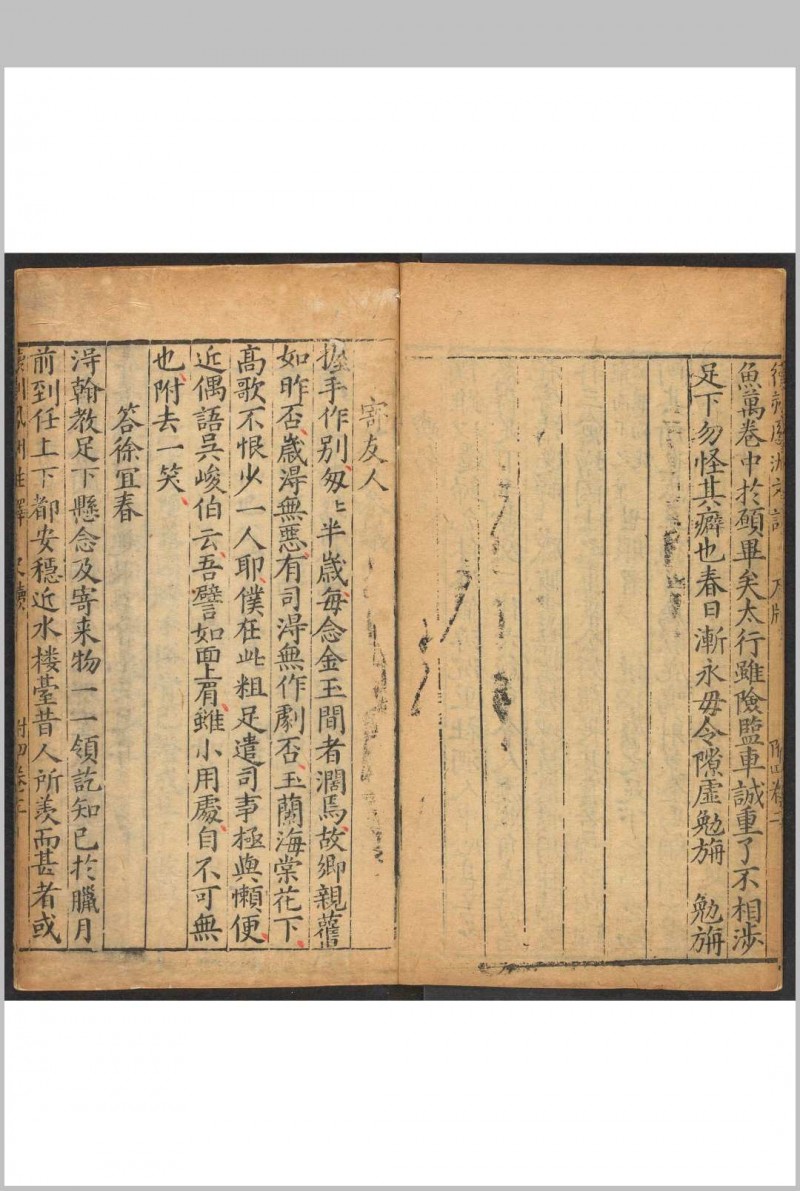 魚萬卷中於頋畢矣太行雖險監車誠重了不相渉
足下勿怪其癖也春日漸永毋令隙虛勉旃　勉旃
寄友人
握手作別匆〻半歳每念金玉間者濶焉故鄉親舊
如昨否歳淂無惡有司淂無作劇否玉蘭海棠花下
高歌不恨少一人耶僕在此粗足遣司事極與懶便
近偶語吳峻伯云吾譬如面上眉雖小用處自不可無
也附去一笑
答徐宜春
淂翰教足下懸念及寄来物一一領訖知已於臘月
前到任上下都安穩近水楼臺昔人所羨而甚者或